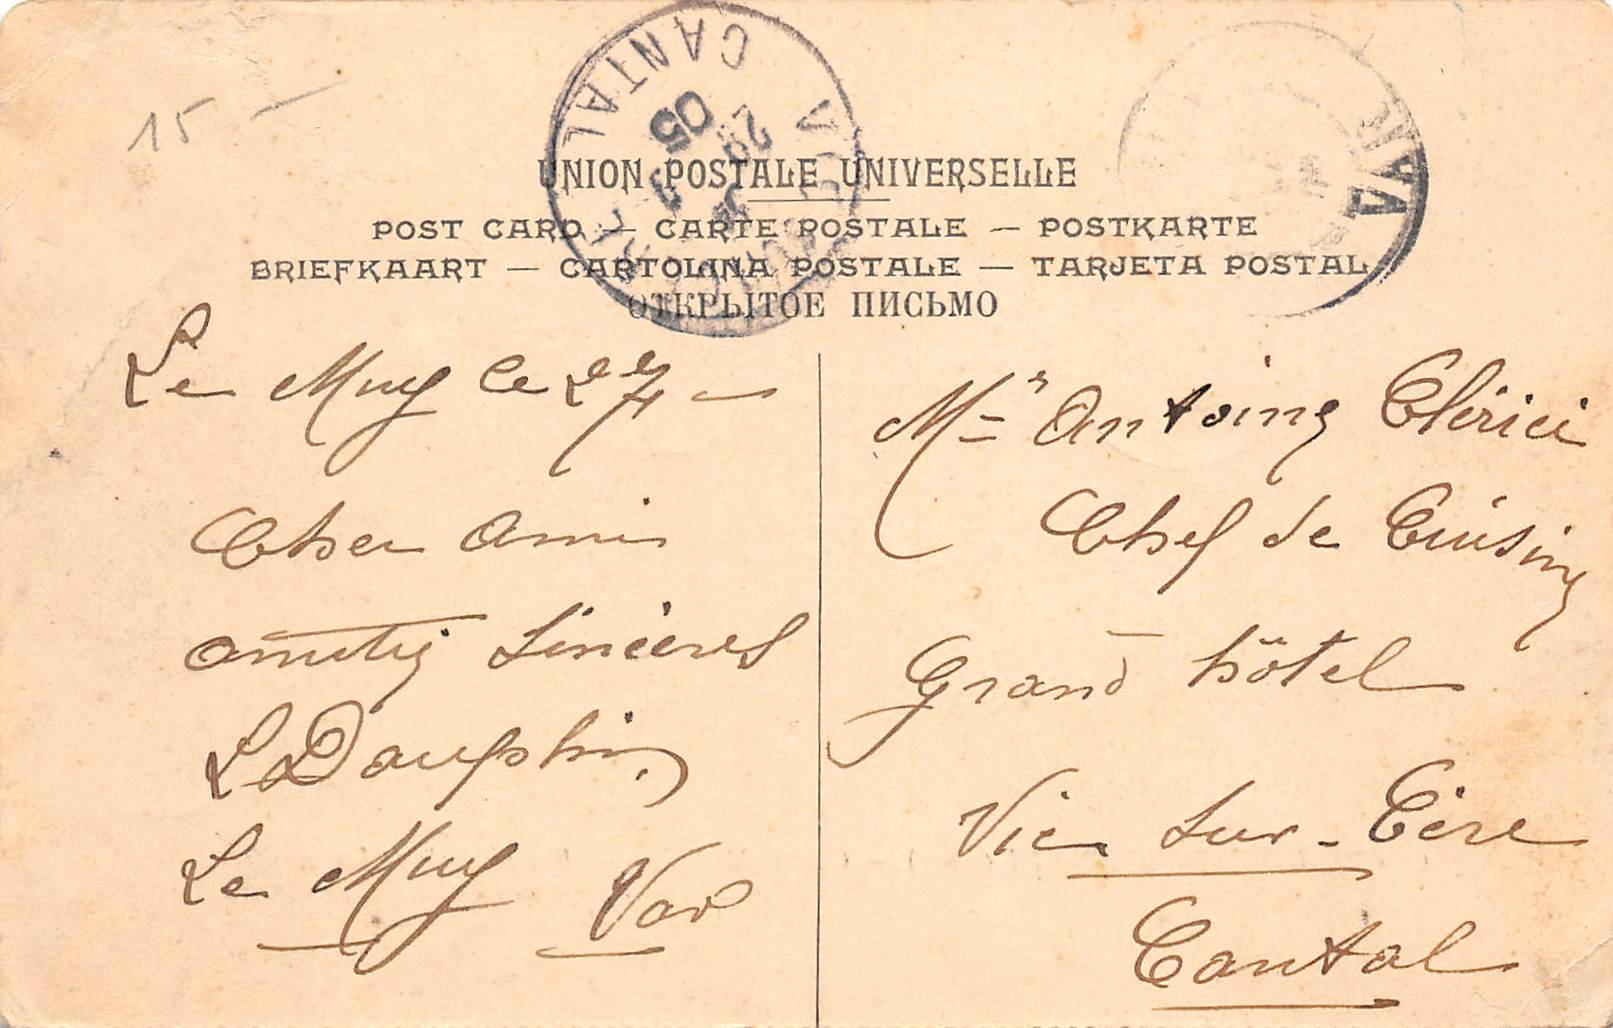 15 —
CANTAL
05
VAR
UNION POSTALE UNIVERSELLE
POST CARD — CARTE POSTALE — POSTKARTE
BRIEFKAART — CARTOLINA POSTALE — TARJETA POSTAL
ОТКРЫТОЕ ПИСЬМО
Le Muy le 27 —
Cher ami
amitiés sincères
L Dauphin
Le Muy Var
Mr Antoine Clérici
Chef de Cuisine
Grand hôtel
Vic sur-Cère
Cantal